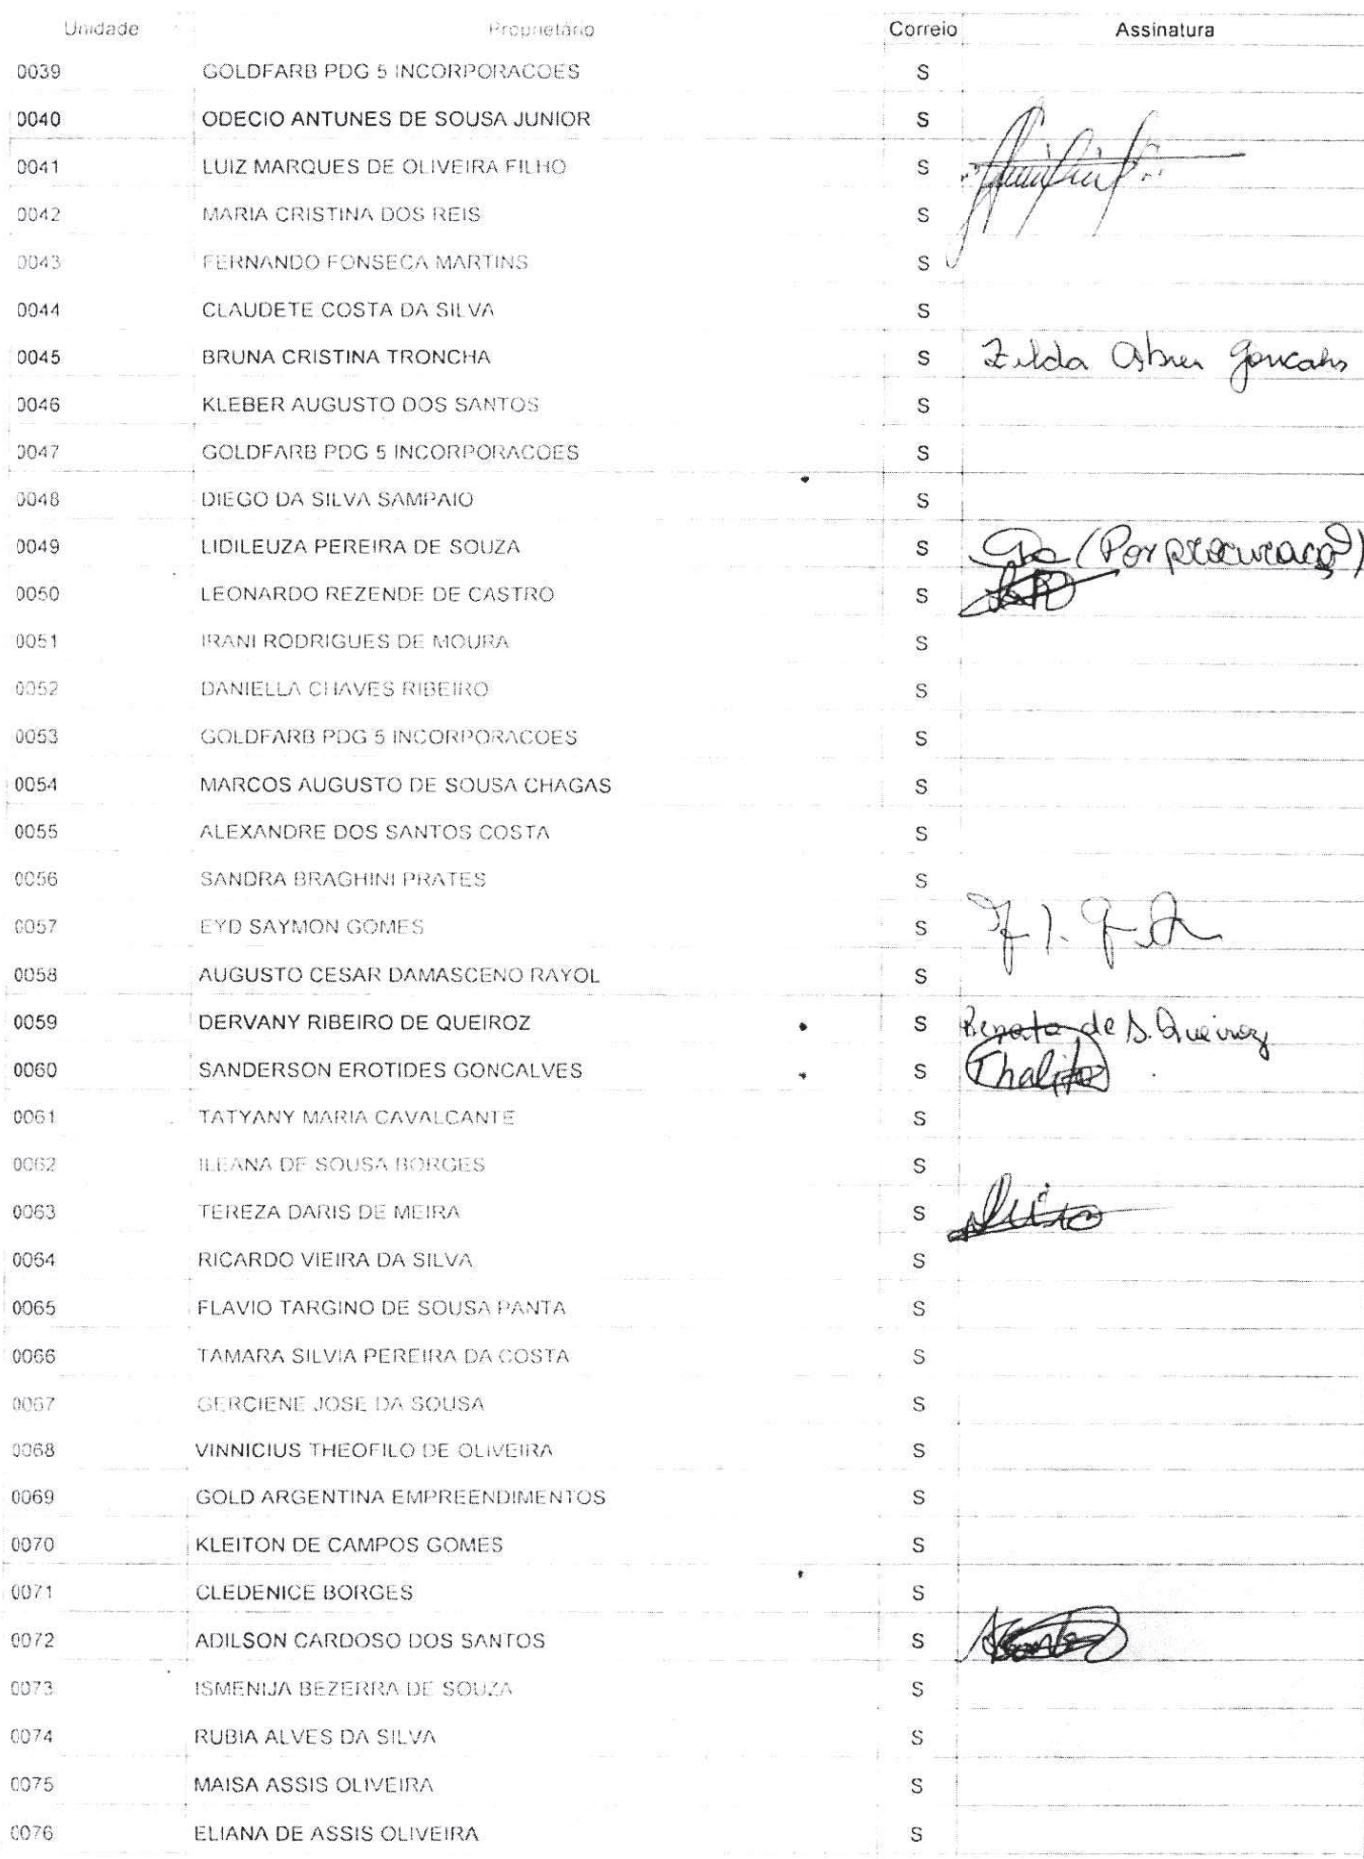 Unidade Proprietário Correio Assinatura
0039 GOLDFARB PDG 5 INCORPORACOES S
0040 ODECIO ANTUNES DE SOUSA JUNIOR S
0041 LUIZ MARQUES DE OLIVEIRA FILHO S
0042 MARIA CRISTINA DOS REIS S
0043 FERNANDO FONSECA MARTINS S
0044 CLAUDETE COSTA DA SILVA S
0045 BRUNA CRISTINA TRONCHA S Zilda
0046 KLEBER AUGUSTO DOS SANTOS S
0047 GOLDFARB PDG 5 INCORPORACOES S
0048 DIEGO DA SILVA SAMPAIO S
0049 LIDILEUZA PEREIRA DE SOUZA S (Por procuração)
0050 LEONARDO REZENDE DE CASTRO S
0051 IRANI RODRIGUES DE MOURA S
0052 DANIELLA CHAVES RIBEIRO S
0053 GOLDFARB PDG 5 INCORPORACOES S
0054 MARCOS AUGUSTO DE SOUSA CHAGAS S
0055 ALEXANDRE DOS SANTOS COSTA S
0056 SANDRA BRAGHINI PRATES S
0057 EYD SAYMON GOMES S
0058 AUGUSTO CESAR DAMASCENO RAYOL S
0059 DERVANY RIBEIRO DE QUEIROZ S Renata de S. Queiroz
0060 SANDERSON EROTIDES GONCALVES S Thalita
0061 TATYANY MARIA CAVALCANTE S
0062 ILEANA DE SOUSA BORGES S
0063 TEREZA DARIS DE MEIRA S
0064 RICARDO VIEIRA DA SILVA S
0065 FLAVIO TARGINO DE SOUSA PANTA S
0066 TAMARA SILVIA PEREIRA DA COSTA S
0067 GERCIENE JOSE DA SOUSA S
0068 VINNICIUS THEOFILO DE OLIVEIRA S
0069 GOLD ARGENTINA EMPREENDIMENTOS S
0070 KLEITON DE CAMPOS GOMES S
0071 CLEDENICE BORGES S
0072 ADILSON CARDOSO DOS SANTOS S
0073 ISMENIJA BEZERRA DE SOUZA S
0074 RUBIA ALVES DA SILVA S
0075 MAISA ASSIS OLIVEIRA S
0076 ELIANA DE ASSIS OLIVEIRA S